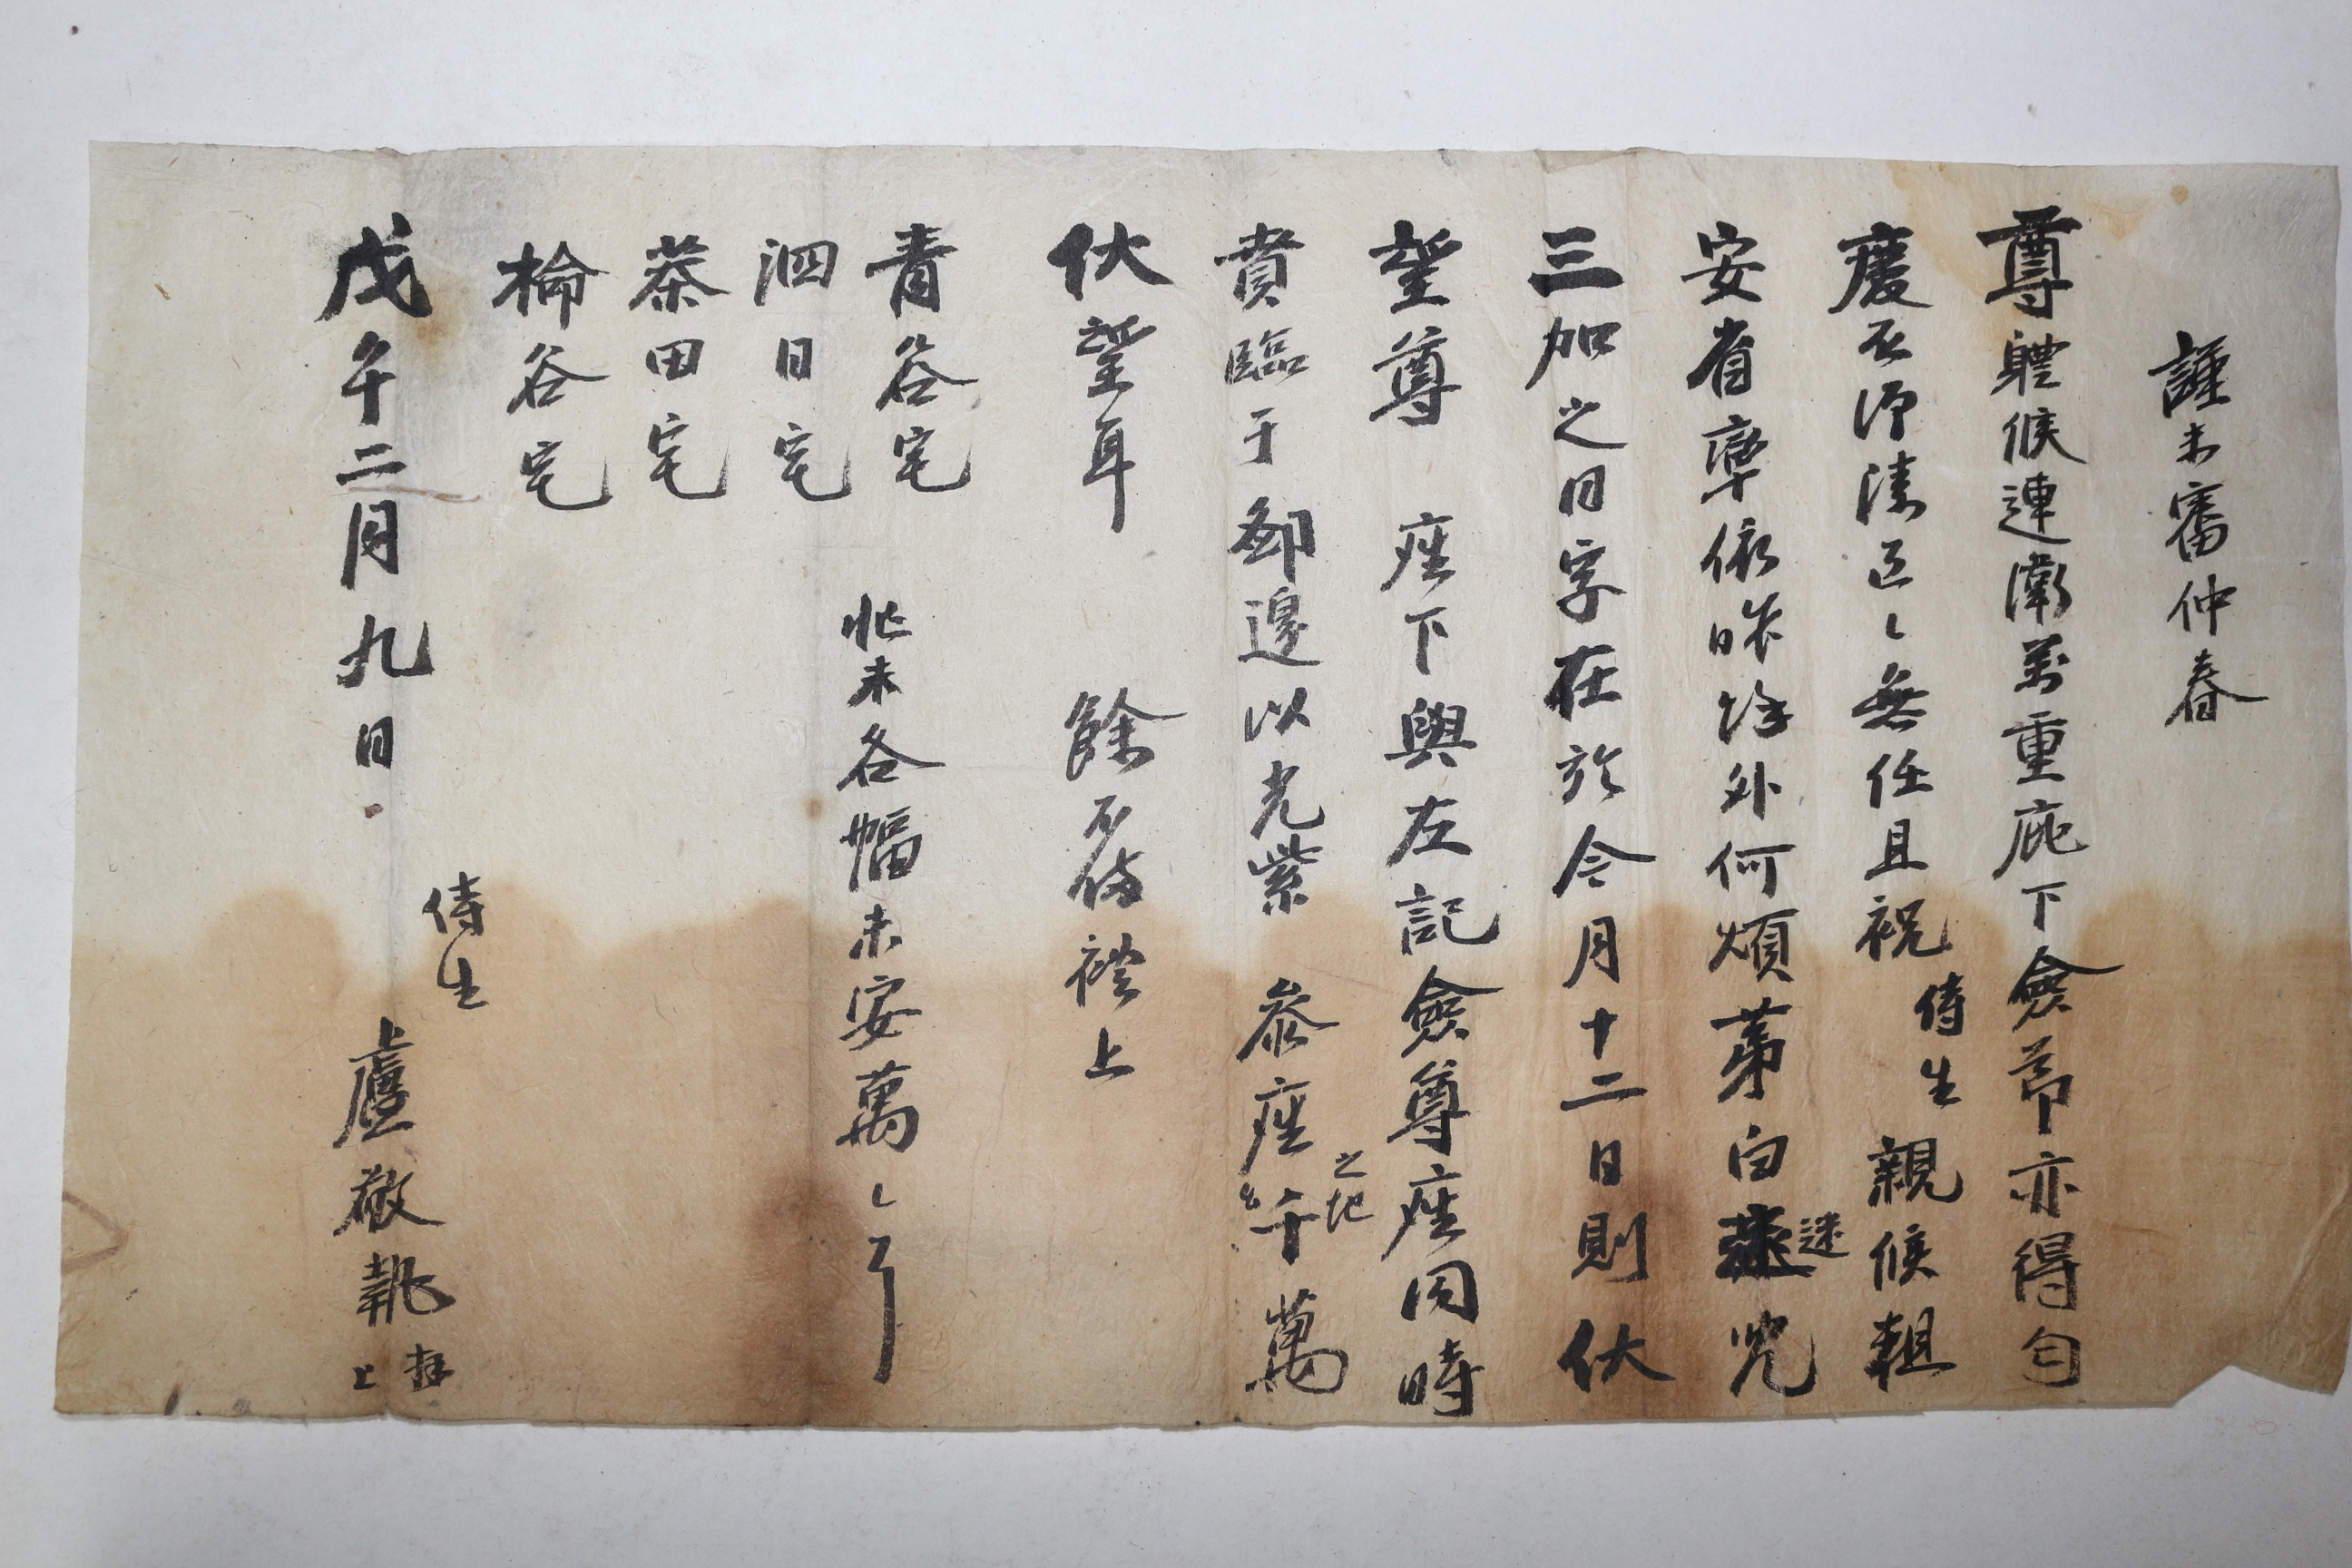 謹未審仲春
尊體候連衛萬重庇下僉節亦得勻
慶否仰溸區〻無任且祝侍生親候粗
安省率依昨姑外何煩第白迷兒
三加之日字在於今月十二日則伏
望尊 座下與左記僉尊座同時
賁臨于鄙邊以光紫 參座之地千萬
伏望耳 餘不備禮上
青谷宅
泗日宅
茶田宅
棆谷宅
非未各幅未安萬〻耳
戊午二月九日
侍生 盧敬執 拜上